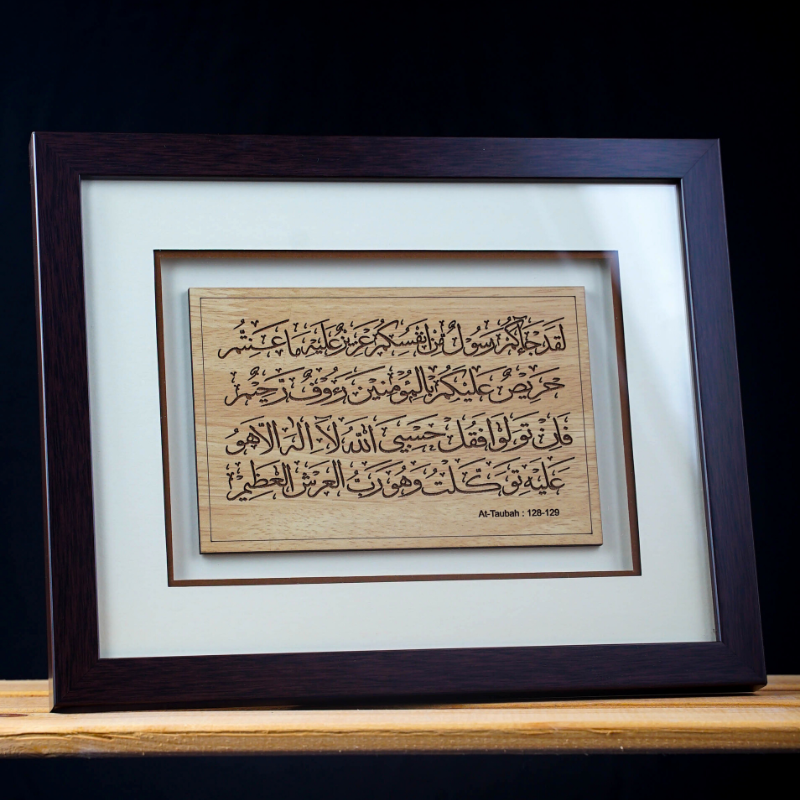 لقد جاءكم رسول من أنفسكم عزيز عليه ما عنتم
حريص عليكم بالمؤمنين رءوف رحيم
فإن تولوا فقل حسبي الله لا إله إلا هو
عليه توكلت وهو رب العرش العظيم
At-Taubah : 128-129